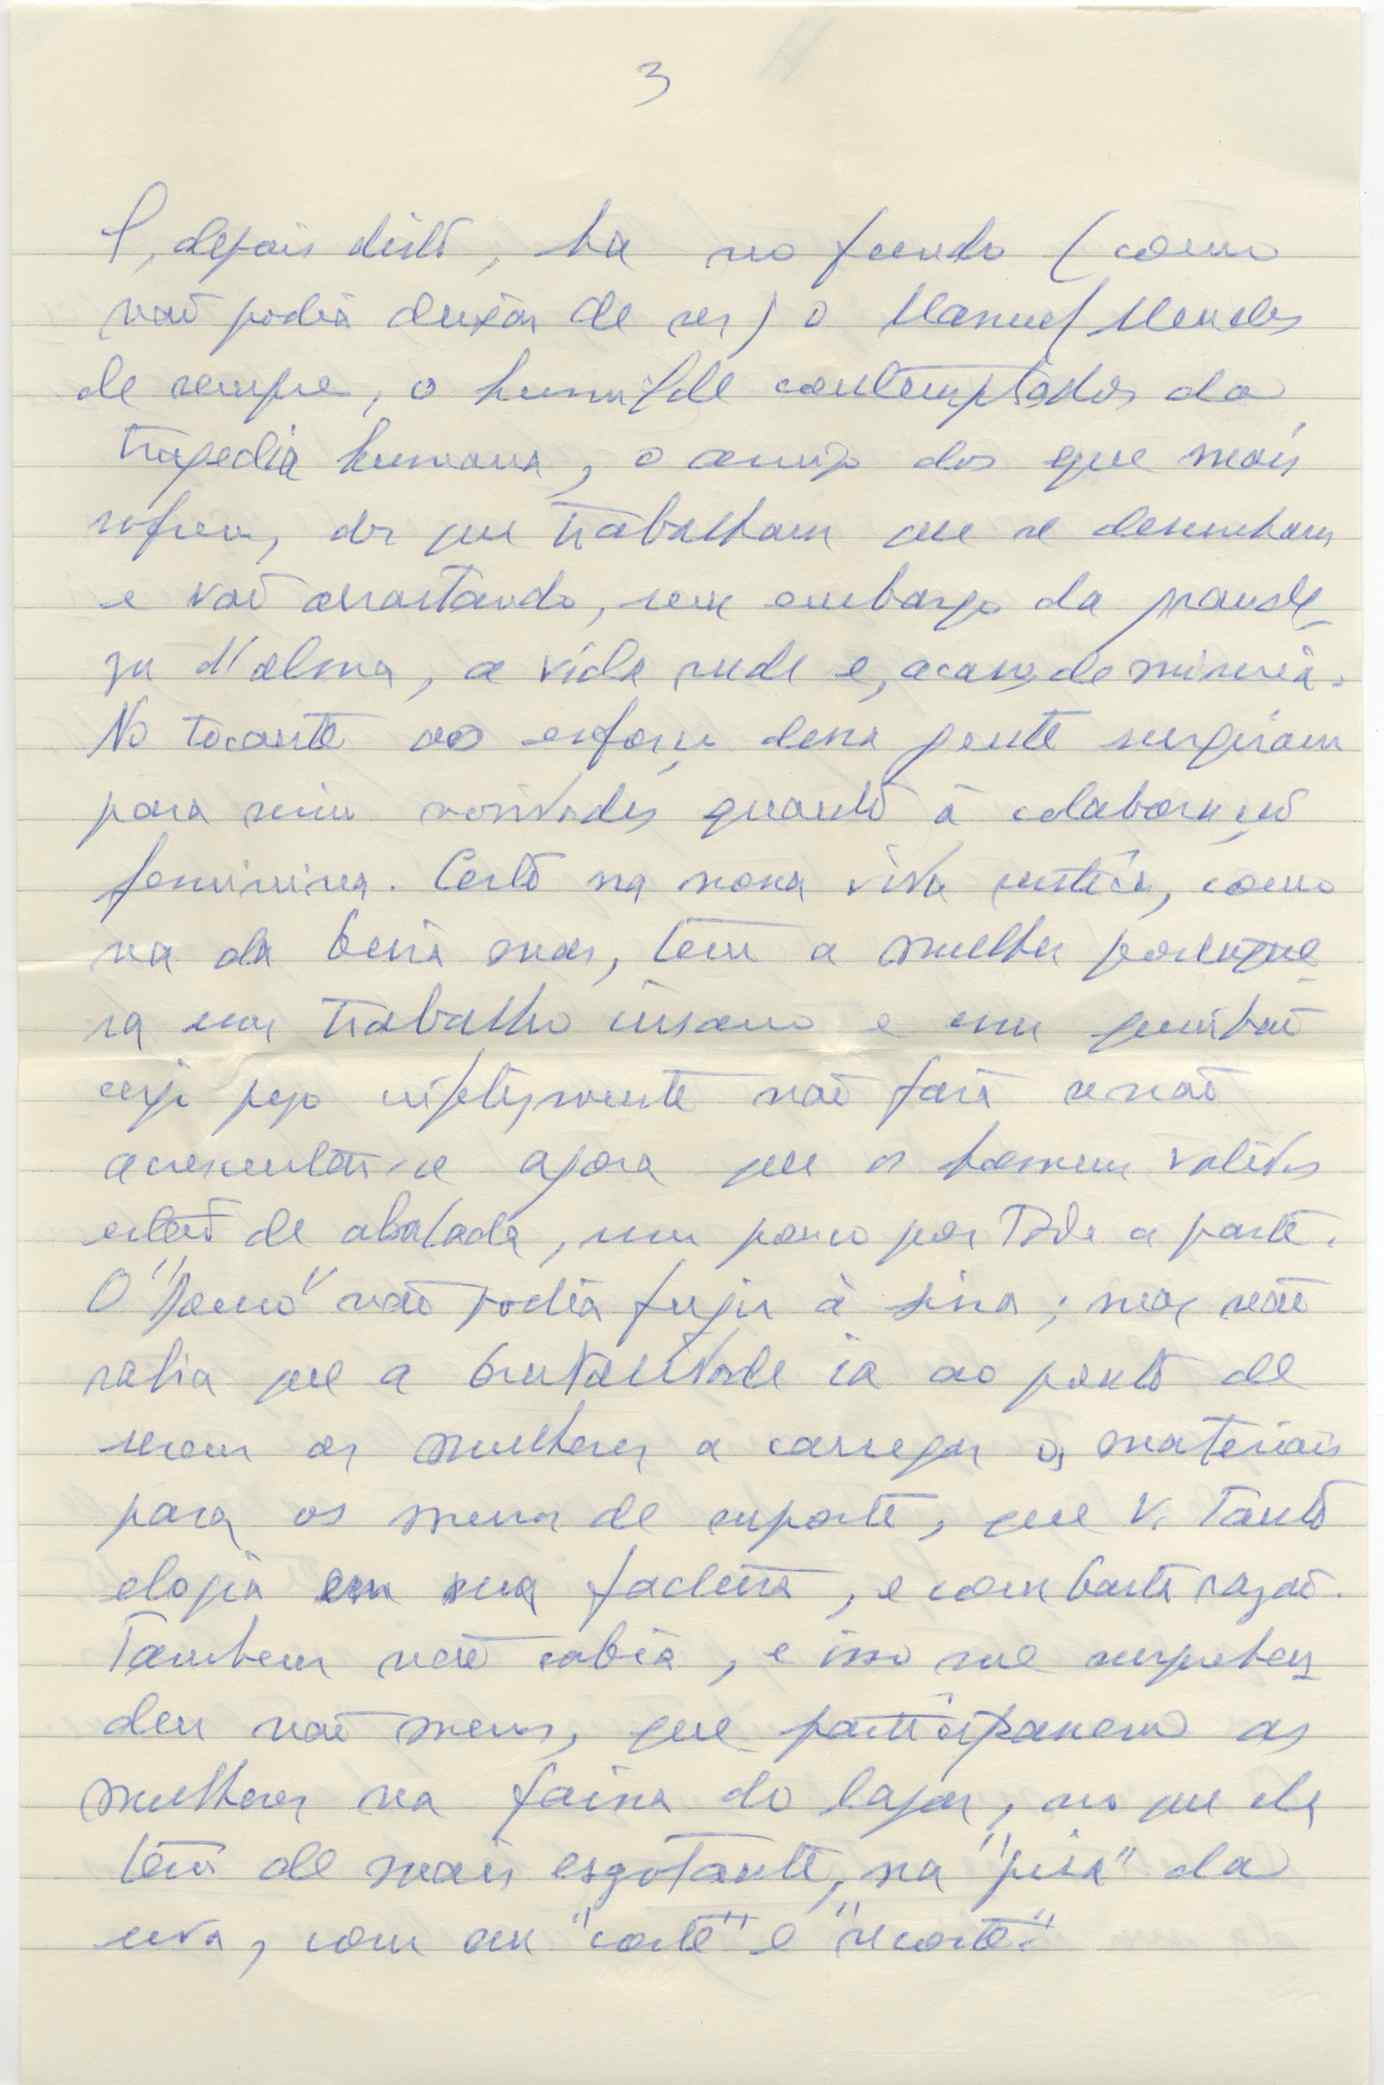 3
E, depois disto, ha no fundo (como
não podia deixar de ser) o Manuel Mendes
de sempre, o humilde contemplador da
tragedia humana, o amigo dos que mais
sofrem, dos que trabalham que se desunham
e vão arrastando, sem embargo da grande
za d'alma, a vida rude e, acaso, de miseria.
No tocante ao esforço dessa gente surgiram
para mim novidades quanto à colaboração
feminina. Certo na nossa vida rustica, como
na da beira mar, tem a mulher portugue
sa um trabalho insano e um quinhão
cujo peso infelizmente não fará senão
acrescentar-se agora que os homens validos
estão de abalada, um pouco por toda a parte.
O "Douro" não podia fugir à sina; mas não
sabia que a brutalidade ia ao ponto de
serem as mulheres a carregar os materiais
para os muros de suporte, que V. tanto
elogia em sua factura, e com basta razão.
Tambem não sabia, e isso me surpreen
deu não menos, que participassem as
mulheres na faina do lagar, no que ela
tem de mais esgotante, na "pisa" da
uva, com seu "corte" e "recorte".